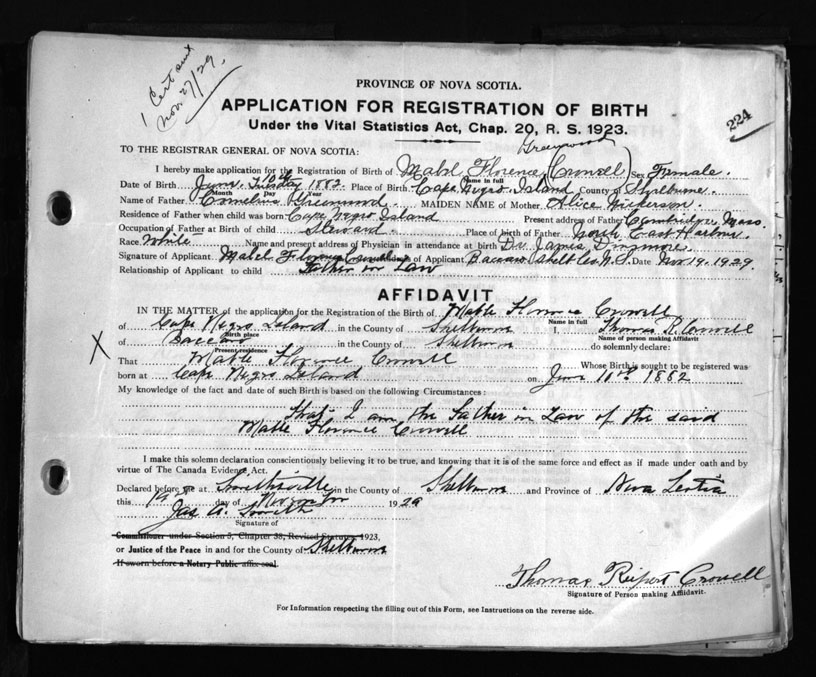 1 Cert sent
Nov 27/29.
PROVINCE OF NOVA SCOTIA.
APPLICATION FOR REGISTRATION OF BIRTH
224
Under the Vital Statistics Act, Chap. 20, R. S. 1923.
TO THE REGISTRAR GENERAL OF NOVA SCOTIA:
Greenwood
I hereby make application for the Registration of Birth of Mabel Florence (Crowell) Sex Female.
Name in full
Date of Birth June. 10th Tuesday 1882. Place of Birth Cape Negro Island County of Shelburne.
Month Day Year
Name of Father Cornelius Greenwood. MAIDEN NAME of Mother Alice Nickerson.
Residence of Father when child was born Cape Negro Island Present address of Father Cambridge, Mass.
Occupation of Father at Birth of child Steward Place of birth of Father North East Harbor.
Race White Name and present address of Physician in attendance at birth Dr James Dinsmore.
Signature of Applicant Mabel Florence Crowell of Applicant Baccaro Shelb Co N.S. Date Nov 19. 1929.
Relationship of Applicant to child Father in Law
AFFIDAVIT
IN THE MATTER of the application for the Registration of the Birth of Mable Florence Crowell
Name in full
of Cape Negro Island in the County of Shelburne I, Thomas R. Crowell
Birth place Name of person making Affidavit
of Baccaro in the County of Shelburne do solemnly declare:
Present residence
That Mable Florence Crowell Whose Birth is sought to be registered was
born at Cape Negro Island on June 10th 1882
My knowledge of the fact and date of such Birth is based on the following Circumstances:
That I am the Father in Law of the said
Mable Florence Crowell
I make this solemn declaration conscientiously believing it to be true, and knowing that it is of the same force and effect as if made under oath and by
virtue of The Canada Evidence Act.
Declared before me at Smithsville in the County of Shelburne and Province of Nova Scotia
this 19 day of November 1929
Jas A. Smith
Signature of
Commissioner under Section 5, Chapter 38, Revised Statutes 1923,
or Justice of the Peace in and for the County of Shelburne
If sworn before a Notary Public affix seal.
Thomas Rupert Crowell
Signature of Person making Affidavit.
For Information respecting the filling out of this Form, see Instructions on the reverse side.